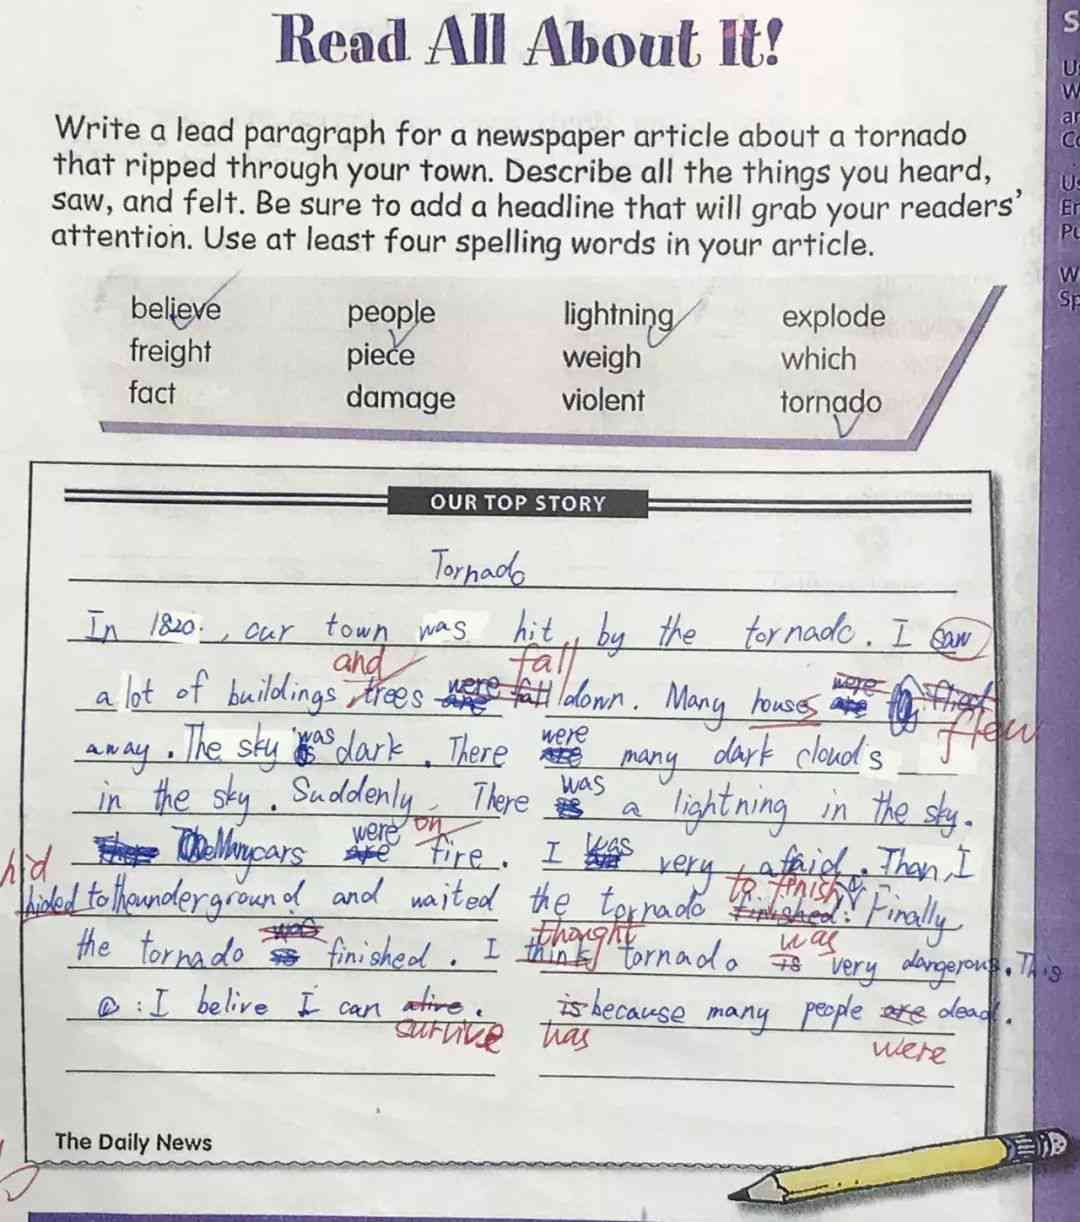 Read All About It!
Write a lead paragraph for a newspaper article about a tornado
that ripped through your town. Describe all the things you heard,
saw, and felt. Be sure to add a headline that will grab your readers'
attention. Use at least four spelling words in your article.
believe people lightning explode
freight piece weigh which
fact damage violent tornado
OUR TOP STORY
Tornado
In 1820. , our town was hit by the tornado. I saw
and fall
a lot of buildings, trees were are fall down. Many houses were are
flew
away. The sky was is dark. There were are many dark clouds
in the sky. Suddenly, There was is a lightning in the sky.
The Many cars were are on fire. I was very afaid. Than, I
hid
hided to the underground and waited the tornado finished. Finally
to finish
the tornado was is finished. I think tornado is very dangerous. This
thought was
: I belive I can alive. is because many people are dead.
survive has were
The Daily News
S
U
W
ar
Co
Us
Er
Pu
W
Sp